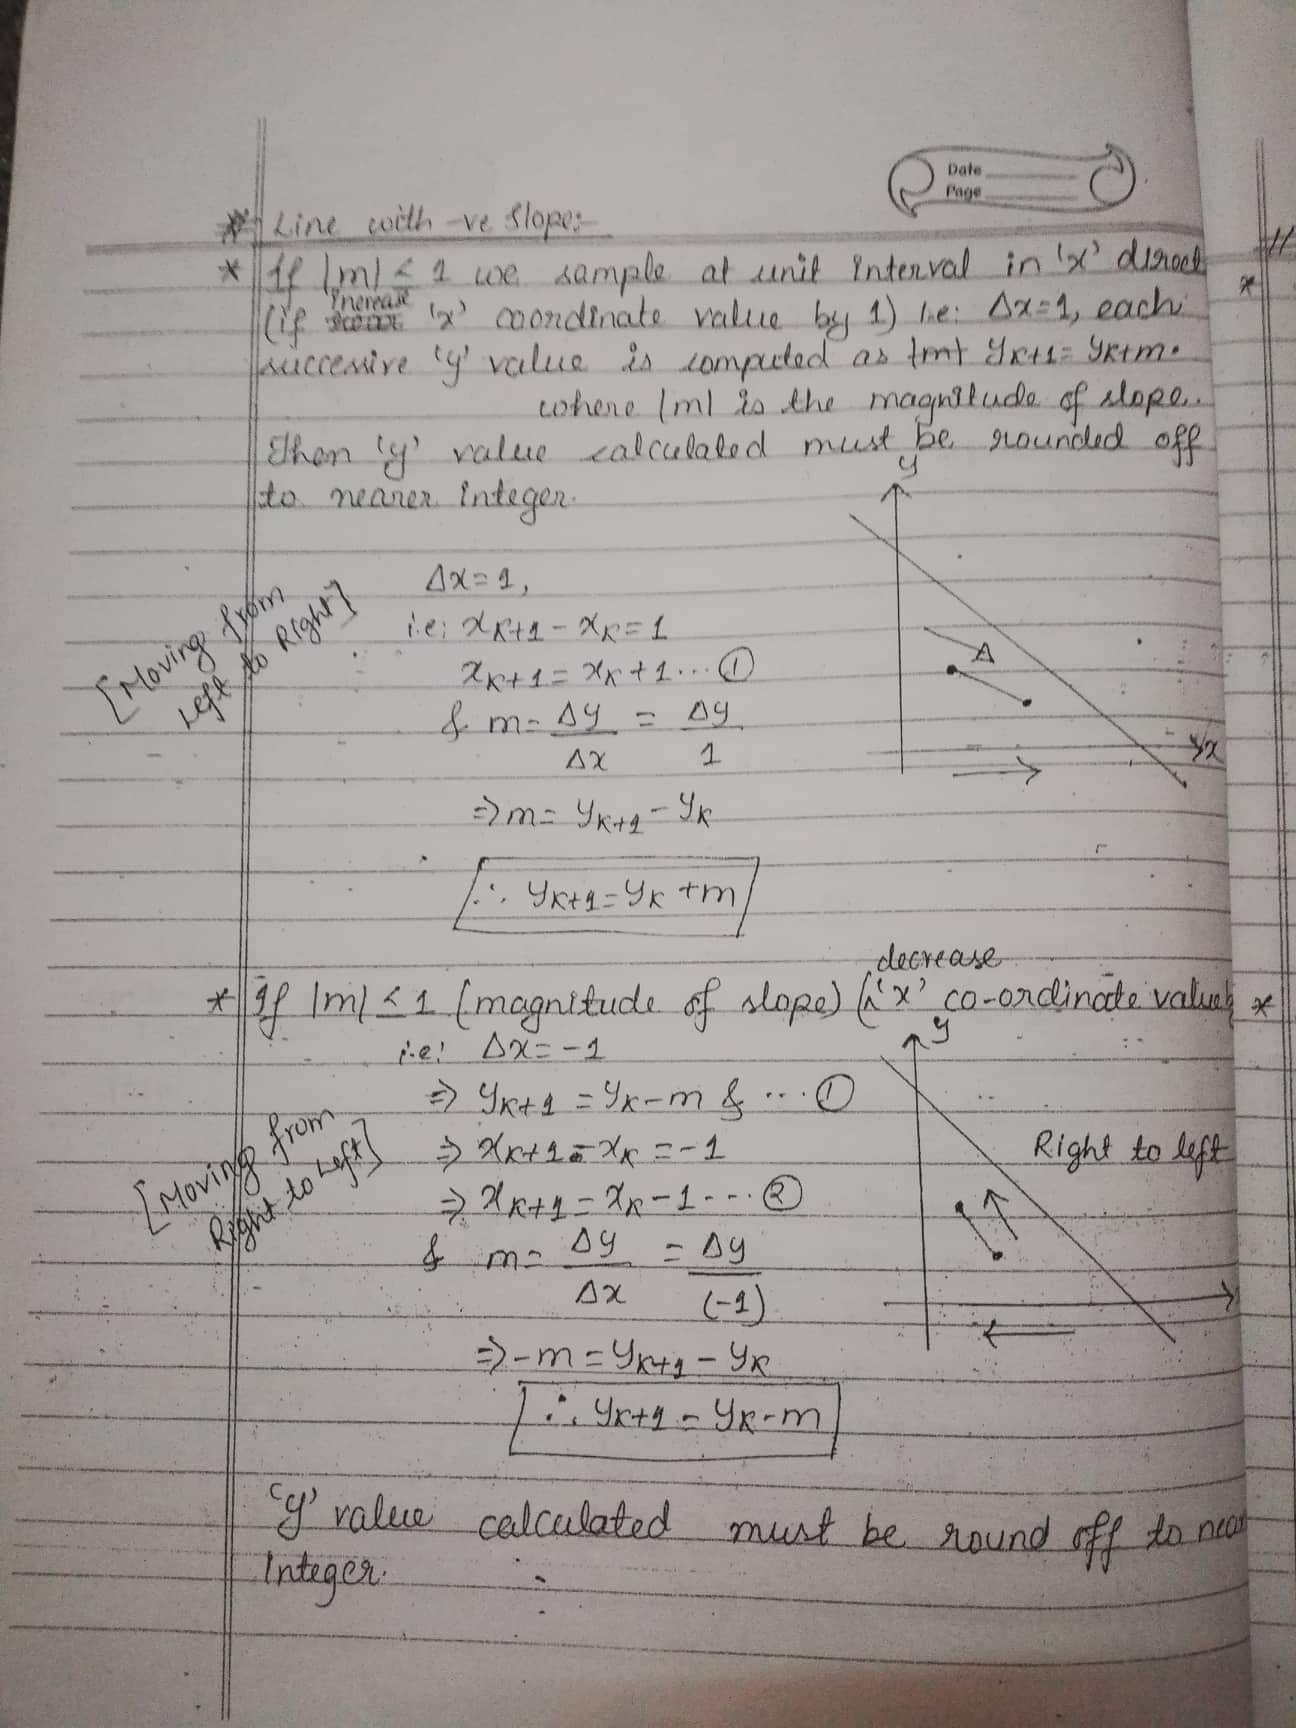 Date
Page
* Line with -ve Slope:-
* If |m| ≤ 1 we sample at unit interval in 'x' direct
(if increase 'x' coordinate value by 1) i.e: Δx=1, each
successive 'y' value is computed as yk+1 = yk+m.
where |m| is the magnitude of slope.
Then 'y' value calculated must be rounded off
to nearer integer.
y
x
[Moving from
Left to Right]
Δx=1,
i.e; xk+1 - xk = 1
xk+1 = xk + 1 ... ①
& m = Δy/Δx = Δy/1
=> m = yk+1 - yk
∴ yk+1 = yk + m
decrease
* If |m| ≤ 1 (magnitude of slope) ('x' co-ordinate value
i.e! Δx = -1
y
=> yk+1 = yk - m & ... ①
=> xk+1 - xk = -1
Right to left
[Moving from
Right to Left]
=> xk+1 = xk - 1 ... ②
& m = Δy/Δx = Δy/(-1)
=> -m = yk+1 - yk
∴ yk+1 = yk - m
'y' value calculated must be round off to near
integer.